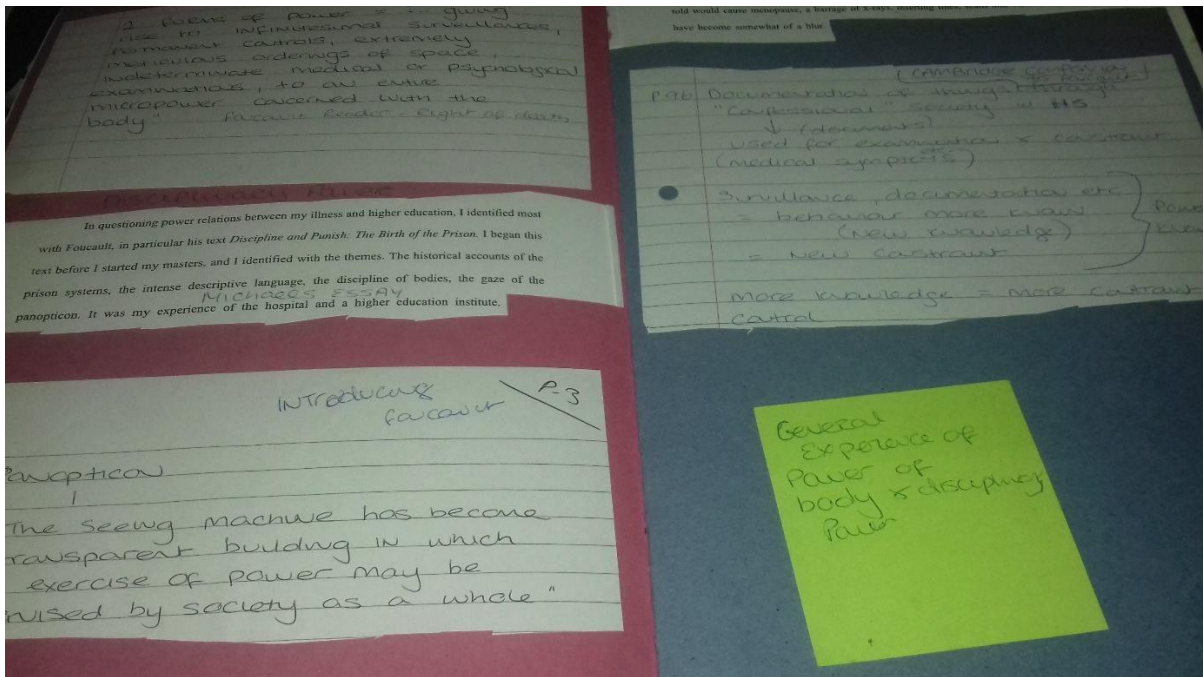 2 forms of power = ... giving
rise to infinitesimal surveillances,
permanent controls, extremely
meticulous orderings of space,
indeterminate medical or psychological
examinations, to an entire
micropower concerned with the
body"  Foucault Reader - Right of death
Disciplinary Power
In questioning power relations between my illness and higher education, I identified most
with Foucault, in particular his text Discipline and Punish: The Birth of the Prison. I began this
text before I started my masters, and I identified with the themes. The historical accounts of the
prison systems, the intense descriptive language, the discipline of bodies, the gaze of the
MICHAELS ESSAY
panopticon. It was my experience of the hospital and a higher education institute,
INTroducing
Foucault
P-3
Panopticon
The seeing machine has become
transparent building in which
exercise of power may be
vised by society as a whole"
told would cause menopause, a barrage of x-rays, inserting
have become somewhat of a blur.
(CAMBridge
P.96 Documentation of things through
"Confessional" society
(documents)
used for examination & constraint
(medical symptoms)
Survillance, documentation etc
= behaviour more known
(New knowledge)
= New constraint
Power
Know
more knowledge more constraint
control
General
Experence of
Power of
body & disciplinary
Power